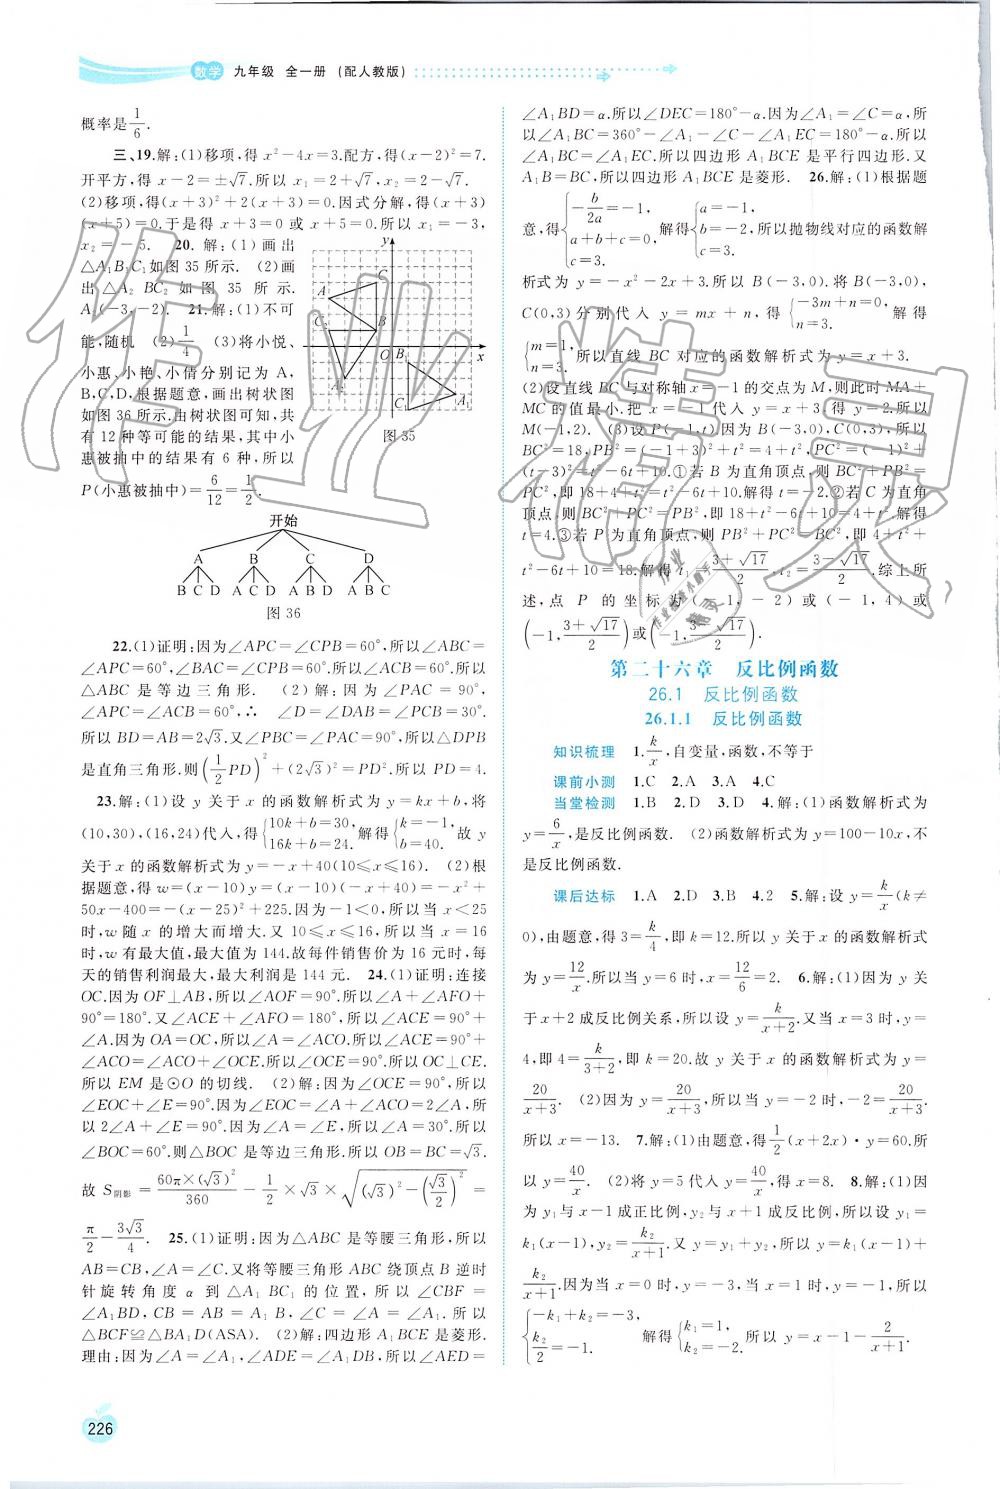 数学 九年级 全一册 (配人教版)
概率是1/6.
三、19.解:(1)移项,得 x²-4x=3.配方,得(x-2)²=7.
开平方,得 x-2=±√7.所以 x₁=2+√7,x₂=2-√7.
(2)移项,得(x+3)²+2(x+3)=0.因式分解,得(x+3)
(x+5)=0.于是得 x+3=0 或 x+5=0.所以 x₁=-3,
x₂=-5. 20. 解:(1)画出
△A₁B₁C₁如图 35 所示. (2)画
出△A₂BC₂ 如图 35 所示.
A₂(-3,-2). 21.解:(1)不可
能,随机 (2)1/4 (3)将小悦、
小惠、小艳、小倩分别记为 A,
B,C,D,根据题意,画出树状图
如图 36 所示.由树状图可知,共
有 12 种等可能的结果,其中小
惠被抽中的结果有 6 种,所以
P(小惠被抽中)=6/12=1/2.
y
C
A
C₂
B
O B₁ x
A₁
C₁
图 35
开始
A B C D
B C D A C D A B D A B C
图 36
22.(1)证明:因为∠APC=∠CPB=60°,所以∠ABC=
∠APC=60°,∠BAC=∠CPB=60°.所以∠ACB=60°.所以
△ABC 是等边三角形. (2)解:因为∠PAC=90°,
∠APC=∠ACB=60°,∴ ∠D=∠DAB=∠PAB=30°.
所以 BD=AB=2√3.又∠PBC=∠PAC=90°,所以△DPB
是直角三角形.则(1/2PD)²+(2√3)²=PD².所以 PD=4.
23.解:(1)设 y 关于 x 的函数解析式为 y=kx+b,将
(10,30),(16,24)代入,得{10k+b=30,16k+b=24.解得{k=-1,b=40.故 y
关于 x 的函数解析式为 y=-x+40(10≤x≤16). (2)根
据题意,得 w=(x-10)y=(x-10)(-x+40)=-x²+
50x-400=-(x-25)²+225.因为-1<0,所以当 x<25
时,w 随 x 的增大而增大.又 10≤x≤16,所以当 x=16
时,w 有最大值,最大值为 144.故每件销售价为 16 元时,每
天的销售利润最大,最大利润是 144 元. 24.(1)证明:连接
OC.因为 OF⊥AB,所以∠AOF=90°.所以∠A+∠AFO+
90°=180°.又∠ACE+∠AFO=180°,所以∠ACE=90°+
∠A.因为 OA=OC,所以∠A=∠ACO.所以∠ACE=90°+
∠ACO=∠ACO+∠OCE.所以∠OCE=90°.所以 OC⊥CE.
所以 EM 是⊙O 的切线. (2)解:因为∠OCE=90°,所以
∠EOC+∠E=90°.因为∠EOC=∠A+∠ACO=2∠A,所
以 2∠A+∠E=90°.因为∠A=∠E,所以∠A=30°.所以
∠BOC=60°.则△BOC 是等边三角形.所以 OB=BC=√3.
故 S阴影=60π×(√3)²/360-1/2×√3×√((√3)²-(√3/2)²)=
π/2-3√3/4. 25.(1)证明:因为△ABC 是等腰三角形,所以
AB=CB,∠A=∠C.又将等腰三角形 ABC 绕顶点 B 逆时
针旋转角度 α 到△A₁BC₁的位置,所以∠CBF=
∠A₁BD,CB=AB=A₁B,∠C=∠A=∠A₁.所以
△BCF≌△BA₁D(ASA). (2)解:四边形 A₁BCE 是菱形.
理由:因为∠A=∠A₁,∠ADE=∠A₁DB,所以∠AED=
∠A₁BD=α.所以∠DEC=180°-α.因为∠A₁=∠C=α,所
以∠A₁BC=360°-∠A₁-∠C-∠A₁EC=180°-α.所以
∠A₁BC=∠A₁EC.所以四边形 A₁BCE 是平行四边形.又
A₁B=BC,所以四边形 A₁BCE 是菱形. 26.解:(1)根据题
意,得{-b/2a=-1,a+b+c=0,c=3.解得{a=-1,b=-2,c=3.所以抛物线对应的函数解
析式为 y=-x²-2x+3.所以 B(-3,0).将 B(-3,0),
C(0,3)分别代入 y=mx+n,得{-3m+n=0,n=3.解得
{m=1,n=3.所以直线 BC 对应的函数解析式为 y=x+3.
(2)设直线 BC 与对称轴 x=-1 的交点为 M,则此时 MA+
MC 的值最小.把 x=-1 代入 y=x+3,得 y=2.所以
M(-1,2). (3)设 P(-1,t).因为 B(-3,0),C(0,3),所以
BC²=18,PB²=(-1+3)²+t²=4+t²,PC²=(-1)²+
(t-3)²=t²-6t+10.①若 B 为直角顶点,则 BC²+PB²=
PC²,即 18+4+t²=t²-6t+10.解得 t=-2.②若 C 为直角
顶点,则 BC²+PC²=PB²,即 18+t²-6t+10=4+t².解得
t=4.③若 P 为直角顶点,则 PB²+PC²=BC²,即 4+t²+
t²-6t+10=18.解得 t₁=(3+√17)/2,t₂=(3-√17)/2.综上所
述,点 P 的坐标为(-1,-2)或(-1,4)或
(-1,(3+√17)/2)或(-1,(3-√17)/2).
第二十六章 反比例函数
26.1 反比例函数
26.1.1 反比例函数
知识梳理 1.k/x,自变量,函数,不等于
课前小测 1.C 2.A 3.A 4.C
当堂检测 1.B 2.D 3.D 4.解:(1)函数解析式为
y=6/x,是反比例函数. (2)函数解析式为 y=100-10x,不
是反比例函数.
课后达标 1.A 2.D 3.B 4.2 5.解:设 y=k/x(k≠
0),由题意,得 3=k/4,即 k=12.所以 y 关于 x 的函数解析式
为 y=12/x.所以当 y=6 时,x=12/6=2. 6.解:(1)因为 y 关
于 x+2 成反比例关系,所以设 y=k/(x+2).又当 x=3 时,y=
4,即 4=k/(3+2),即 k=20.故 y 关于 x 的函数解析式为 y=
20/(x+3). (2)因为 y=20/(x+3),所以当 y=-2 时,-2=20/(x+3).
所以 x=-13. 7.解:(1)由题意,得1/2(x+2x)·y=60.所
以 y=40/x. (2)将 y=5 代入 y=40/x,得 x=8. 8.解:(1)因
为 y₁与 x-1 成正比例,y₂与 x+1 成反比例,所以设 y₁=
k₁(x-1),y₂=k₂/(x+1).又 y=y₁+y₂,所以 y=k₁(x-1)+
k₂/(x+1).因为当 x=0 时,y=-3,当 x=1 时,y=-1,所以
{-k₁+k₂=-3,k₂/2=-1.解得{k₁=1,k₂=-2.所以 y=x-1-2/(x+1).
226
作业精灵